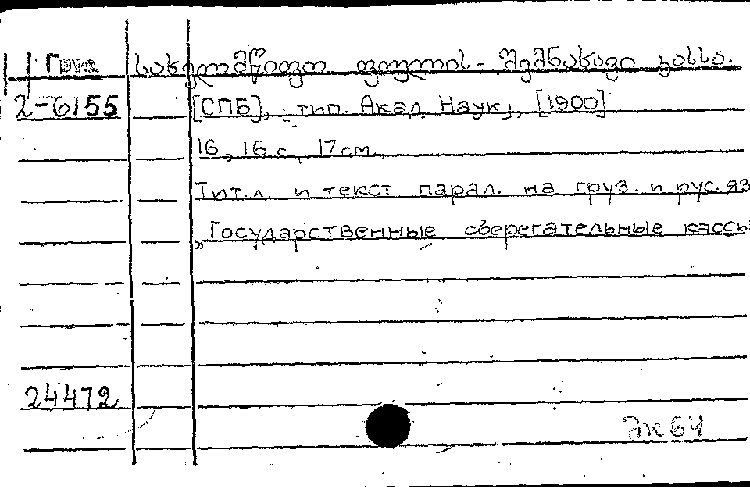 Груз. სახელმწიფო ფულის-შემნახავი კასსა.
2-6155 [СПБ], тип. Акад. Наук, [1900]
16, 16 с. 17 см.
Тит. л. и текст парал. на груз. и рус. яз
„Государственные сберегательные кассы
24472
Эк 64